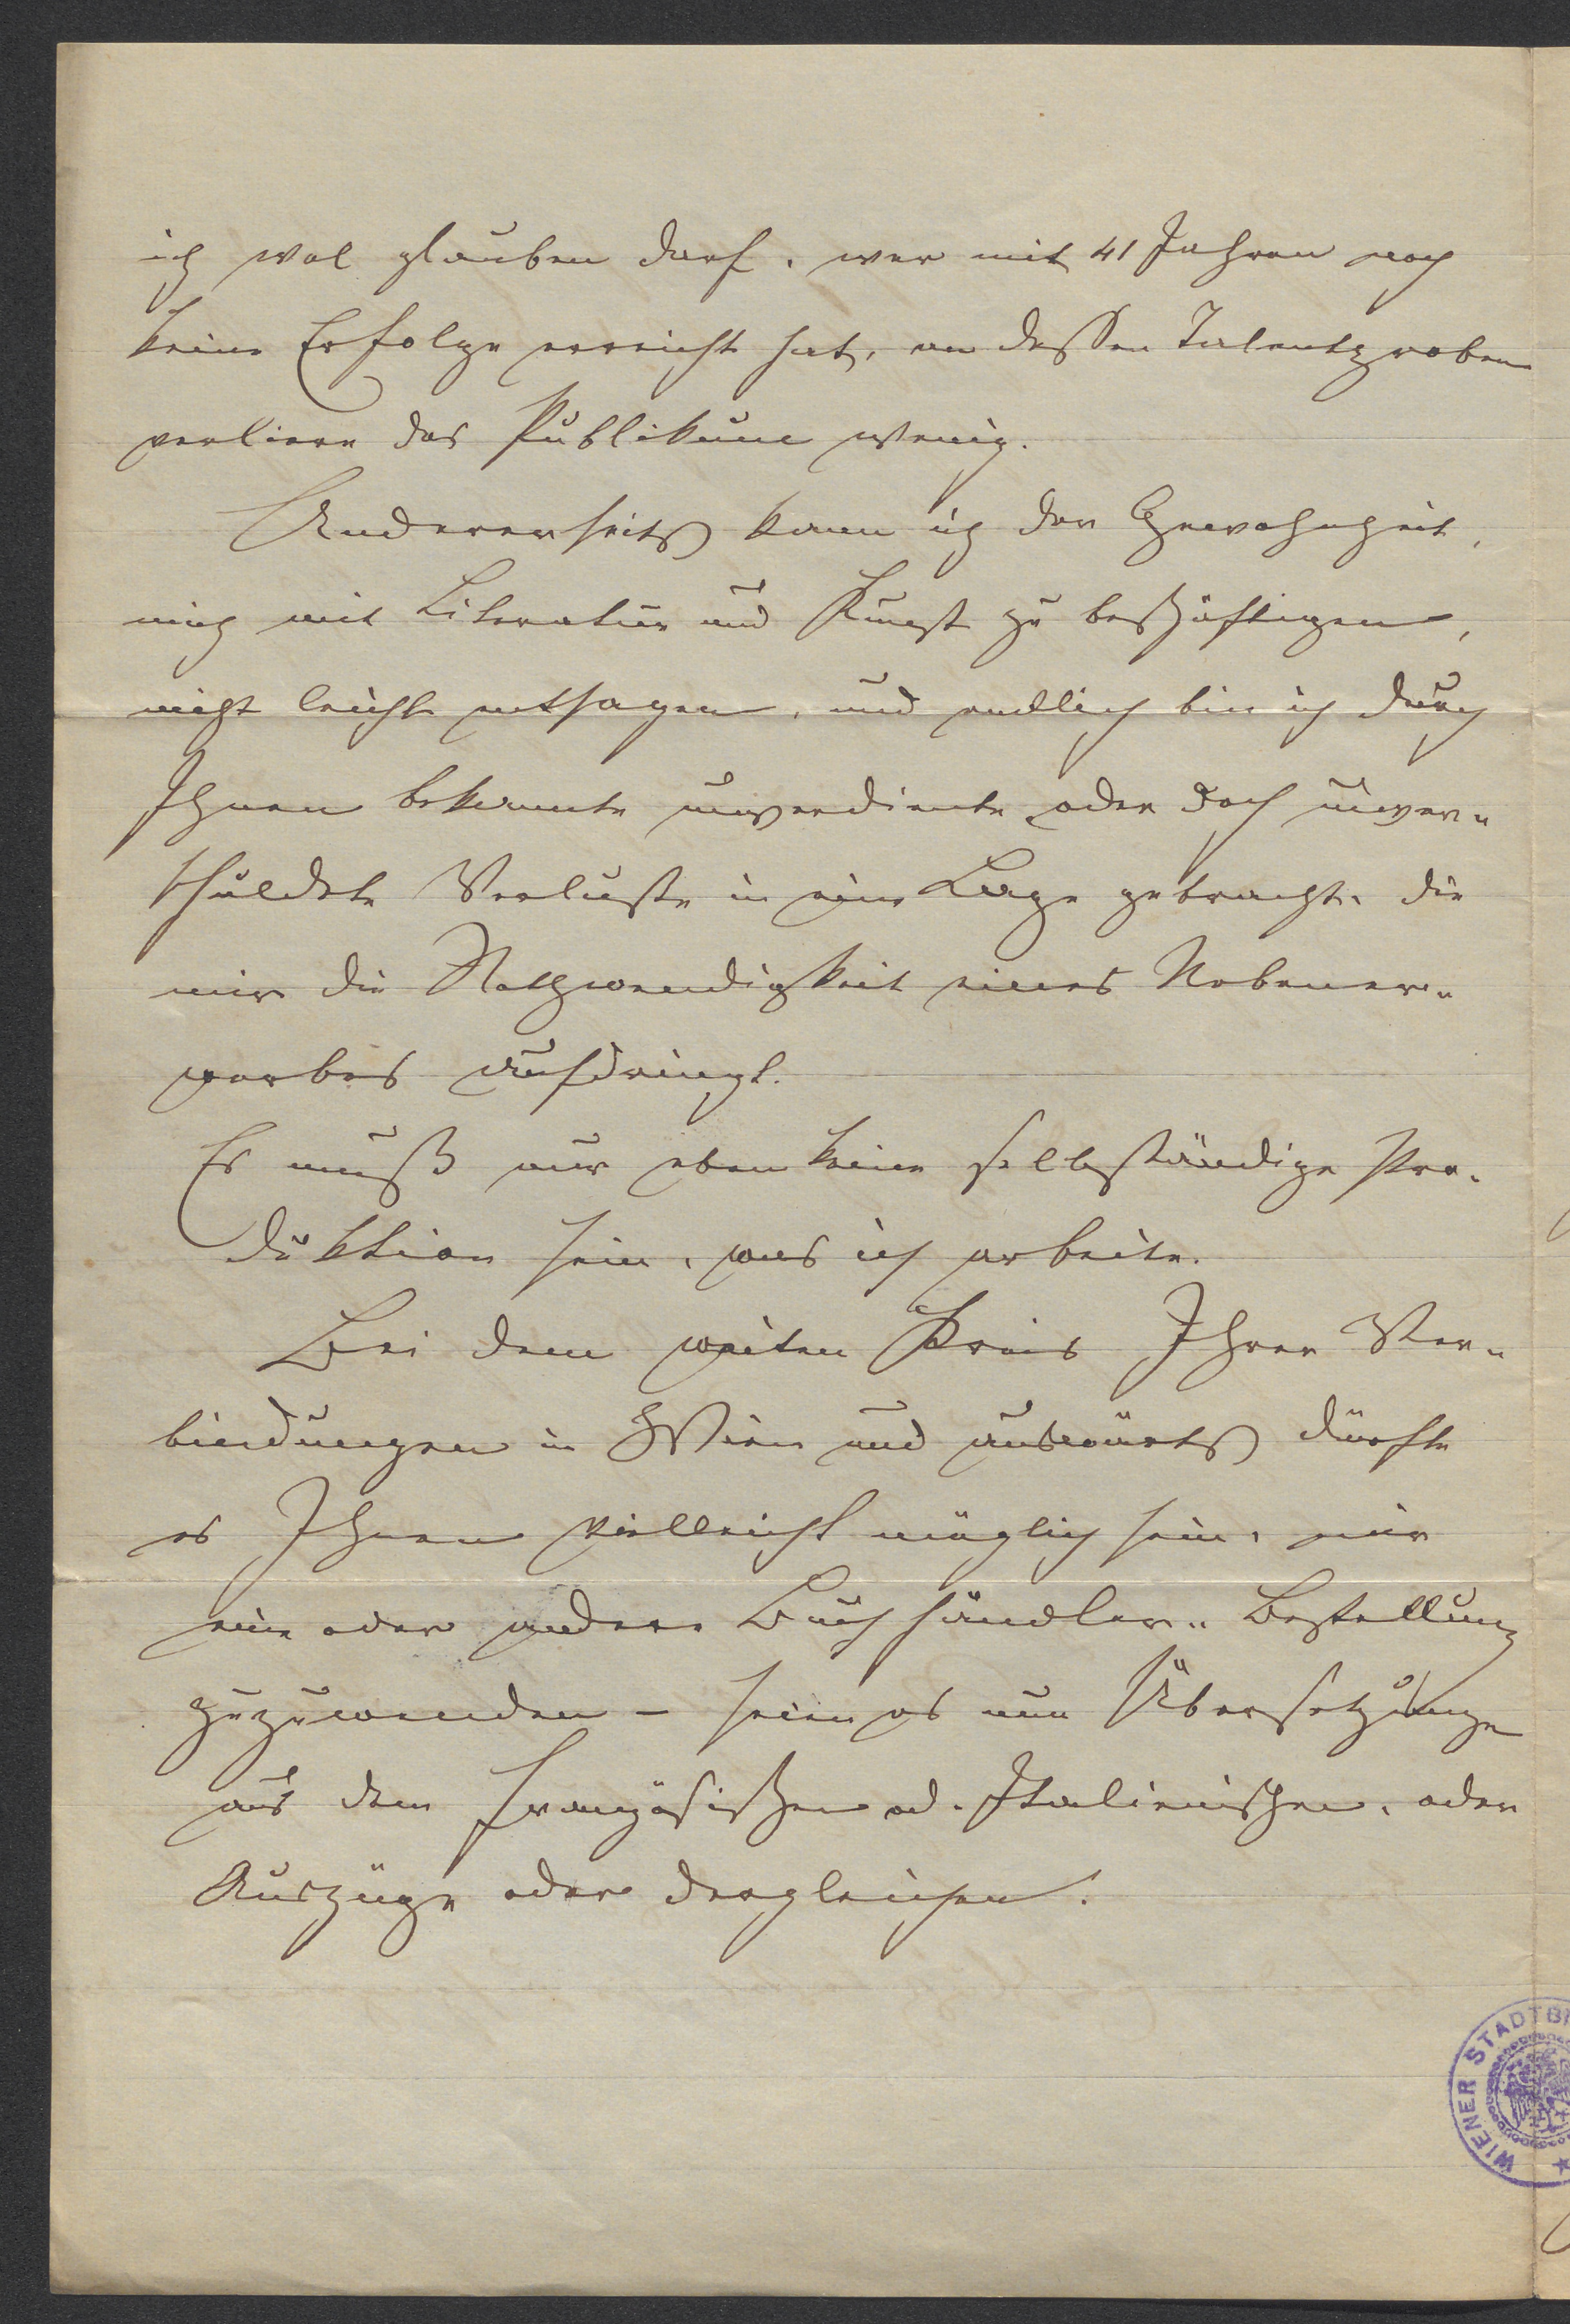 ich wol glauben darf, wer mit 41 Jahren noch
keine Erfolge erreicht hat, an dessen Talentproben
verliere das Publikum wenig.
Andererseits kann ich der Gewohnheit,
mich mit Literatur und Kunst zu beschäftigen,
nicht leicht entsagen, und endlich bin ich durch
Ihnen bekannte unverdiente oder doch unver-
schuldete Verluste in eine Lage gebracht, die
mir die Nothwendigkeit eines Nebener-
werbes aufdringt.
Es muß nur eben keine selbständige Pro-
duktion sein, was ich arbeite.
Bei dem weiten Kreis Ihrer Ver-
bindungen in Wien und auswärts dürfte
es Ihnen vielleicht möglich sein, mir
eine oder andere Buchhändler-Bestellung
zuzuwenden – seien es nun Übersetzungen
aus dem Französischen od. Italienischen, oder
Auszüge oder dergleichen.
WIENER STADTBI